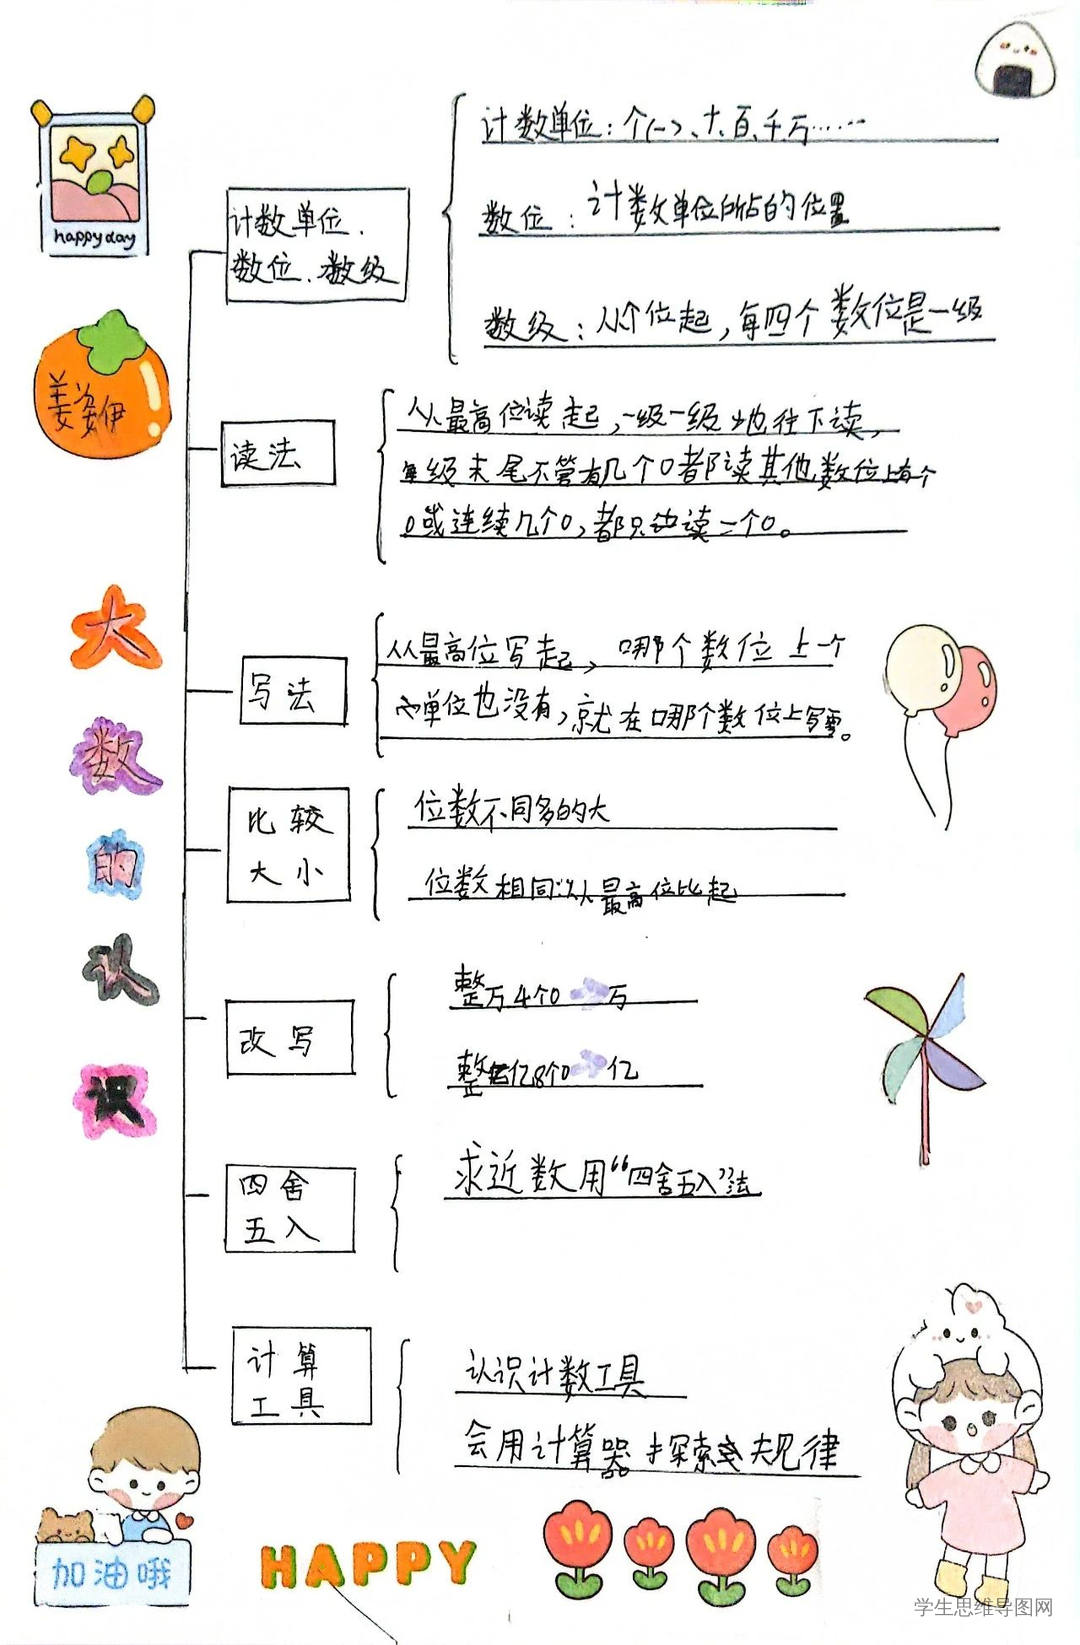 happy day
姜姿伊
大数的认识
计数单位、
数位、数级
计数单位：个(一)、十、百、千、万……
数位：计数单位所占的位置
数级：从个位起，每四个数位是一级
读法
从最高位读起，一级一级地往下读，
每级末尾不管有几个0都不读其他数位上有个
0或连续几个0，都只读一个0。
写法
从最高位写起，哪个数位上一个
单位也没有，就在哪个数位上写零。
比较
大小
位数不同多的大
位数相同从最高位比起
改写
整万4个0 万
整亿8个0 亿
四舍
五入
求近数用“四舍五入”法
计算
工具
认识计数工具
会用计算器探索规律
加油哦
HAPPY
学生思维导图网